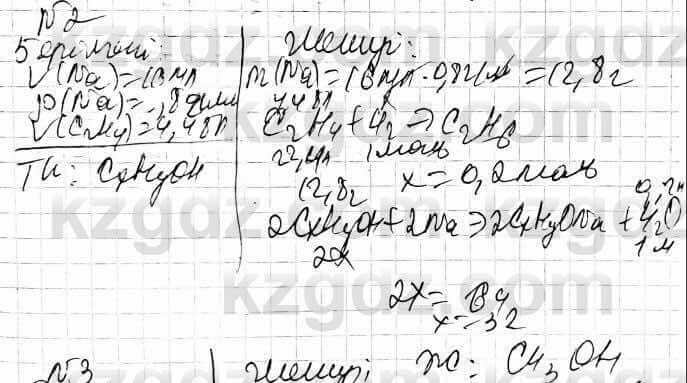 №2
Берілгені:
V(Na)=16 мл
ρ(Na)=,8 г/мл
V(C₂H₄)=4,48 л
Тк: CxHyOH
Шешуі:
m(Na)=16мл·0,8г/мл=12,8г
4,48л x
C₂H₄+H₂→C₂H₆
22,4л 1моль
x=0,2моль
12,8г 0,2м
2CxHyOH+2Na→2CxHyONa+H₂O
2x 1м
2x=64
x=32
Ж: CH₃OH
№3
Шешуі:
kzgdz.com